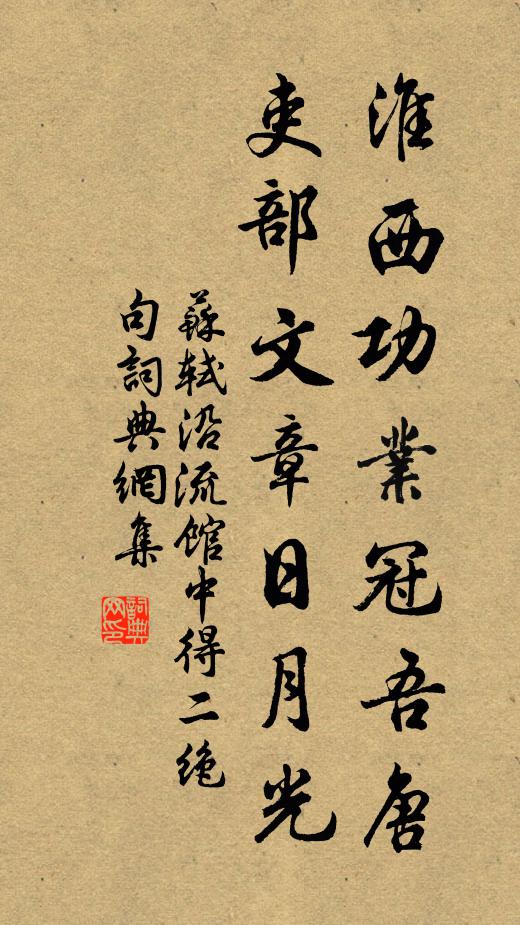 淮西功業冠吾唐
吏部文章日月光
蘇軾沿流館中得二絶
句詞典網集
詞典网印